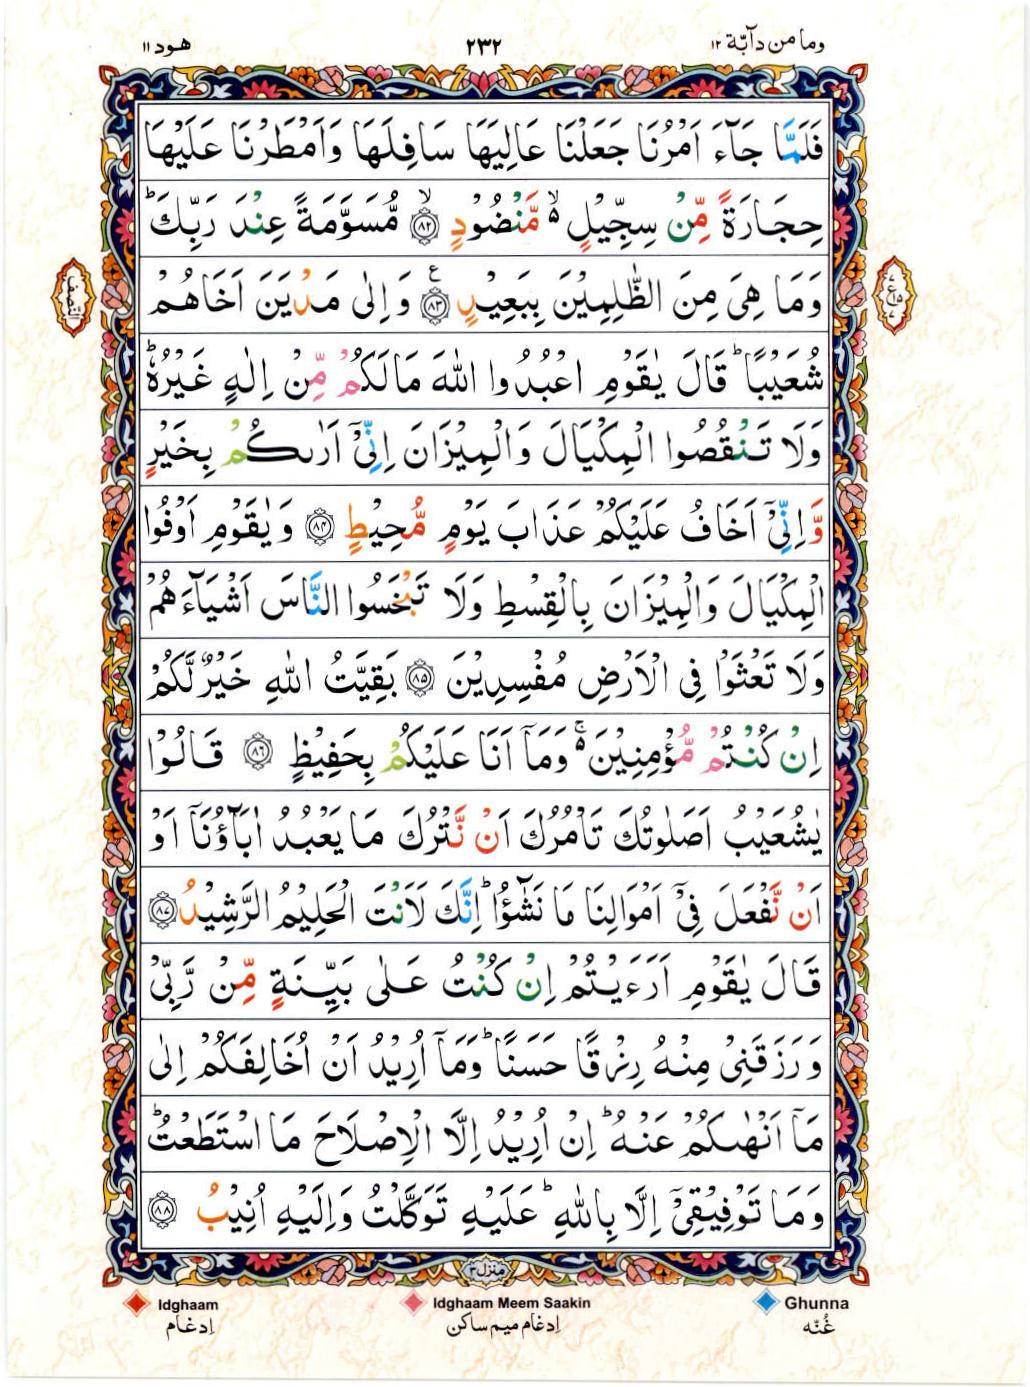 وما من دآبّة ١٢
٢٣٢
هود ١١
فَلَمَّا جَآءَ اَمْرُنَا جَعَلْنَا عَالِيَهَا سَافِلَهَا وَاَمْطَرْنَا عَلَيْهَا
حِجَارَةً مِّنْ سِجِّيْلٍ ۙ۬ مَّنْضُوْدٍ ۙ﴿٨٢﴾ مُّسَوَّمَةً عِنْدَ رَبِّكَ ؕ
وَمَا هِىَ مِنَ الظّٰلِمِيْنَ بِبَعِيْدٍ ﴿٨٣﴾ ع وَاِلٰى مَدْيَنَ اَخَاهُمْ
شُعَيْبًا ؕ قَالَ يٰقَوْمِ اعْبُدُوا اللّٰهَ مَا لَكُمْ مِّنْ اِلٰهٍ غَيْرُهٗ ؕ
وَلَا تَنْقُصُوا الْمِكْيَالَ وَالْمِيْزَانَ اِنِّىْۤ اَرٰٮكُمْ بِخَيْرٍ
وَّاِنِّىْۤ اَخَافُ عَلَيْكُمْ عَذَابَ يَوْمٍ مُّحِيْطٍ ﴿٨٤﴾ وَيٰقَوْمِ اَوْفُوا
الْمِكْيَالَ وَالْمِيْزَانَ بِالْقِسْطِ وَلَا تَبْخَسُوا النَّاسَ اَشْيَآءَهُمْ
وَلَا تَعْثَوْا فِى الْاَرْضِ مُفْسِدِيْنَ ﴿٨٥﴾ بَقِيَّتُ اللّٰهِ خَيْرٌ لَّكُمْ
اِنْ كُنْتُمْ مُّؤْمِنِيْنَ ۚ۬ وَمَاۤ اَنَا عَلَيْكُمْ بِحَفِيْظٍ ﴿٨٦﴾ قَالُوْا
يٰشُعَيْبُ اَصَلٰوتُكَ تَاْمُرُكَ اَنْ نَّتْرُكَ مَا يَعْبُدُ اٰبَآؤُنَاۤ اَوْ
اَنْ نَّفْعَلَ فِىْۤ اَمْوَالِنَا مَا نَشٰٓؤُا ؕ اِنَّكَ لَاَنْتَ الْحَلِيْمُ الرَّشِيْدُ ﴿٨٧﴾
قَالَ يٰقَوْمِ اَرَءَيْتُمْ اِنْ كُنْتُ عَلٰى بَيِّنَةٍ مِّنْ رَّبِّىْ
وَرَزَقَنِىْ مِنْهُ رِزْقًا حَسَنًا ؕ وَمَاۤ اُرِيْدُ اَنْ اُخَالِفَكُمْ اِلٰى
مَاۤ اَنْهٰٮكُمْ عَنْهُ ؕ اِنْ اُرِيْدُ اِلَّا الْاِصْلَاحَ مَا اسْتَطَعْتُ ؕ
وَمَا تَوْفِيْقِىْۤ اِلَّا بِاللّٰهِ ؕ عَلَيْهِ تَوَكَّلْتُ وَاِلَيْهِ اُنِيْبُ ﴿٨٨﴾
النّصف
منزل ٣
Ghunna
غُنّه
Idghaam Meem Saakin
اِدغام میم ساکن
Idghaam
اِدغام